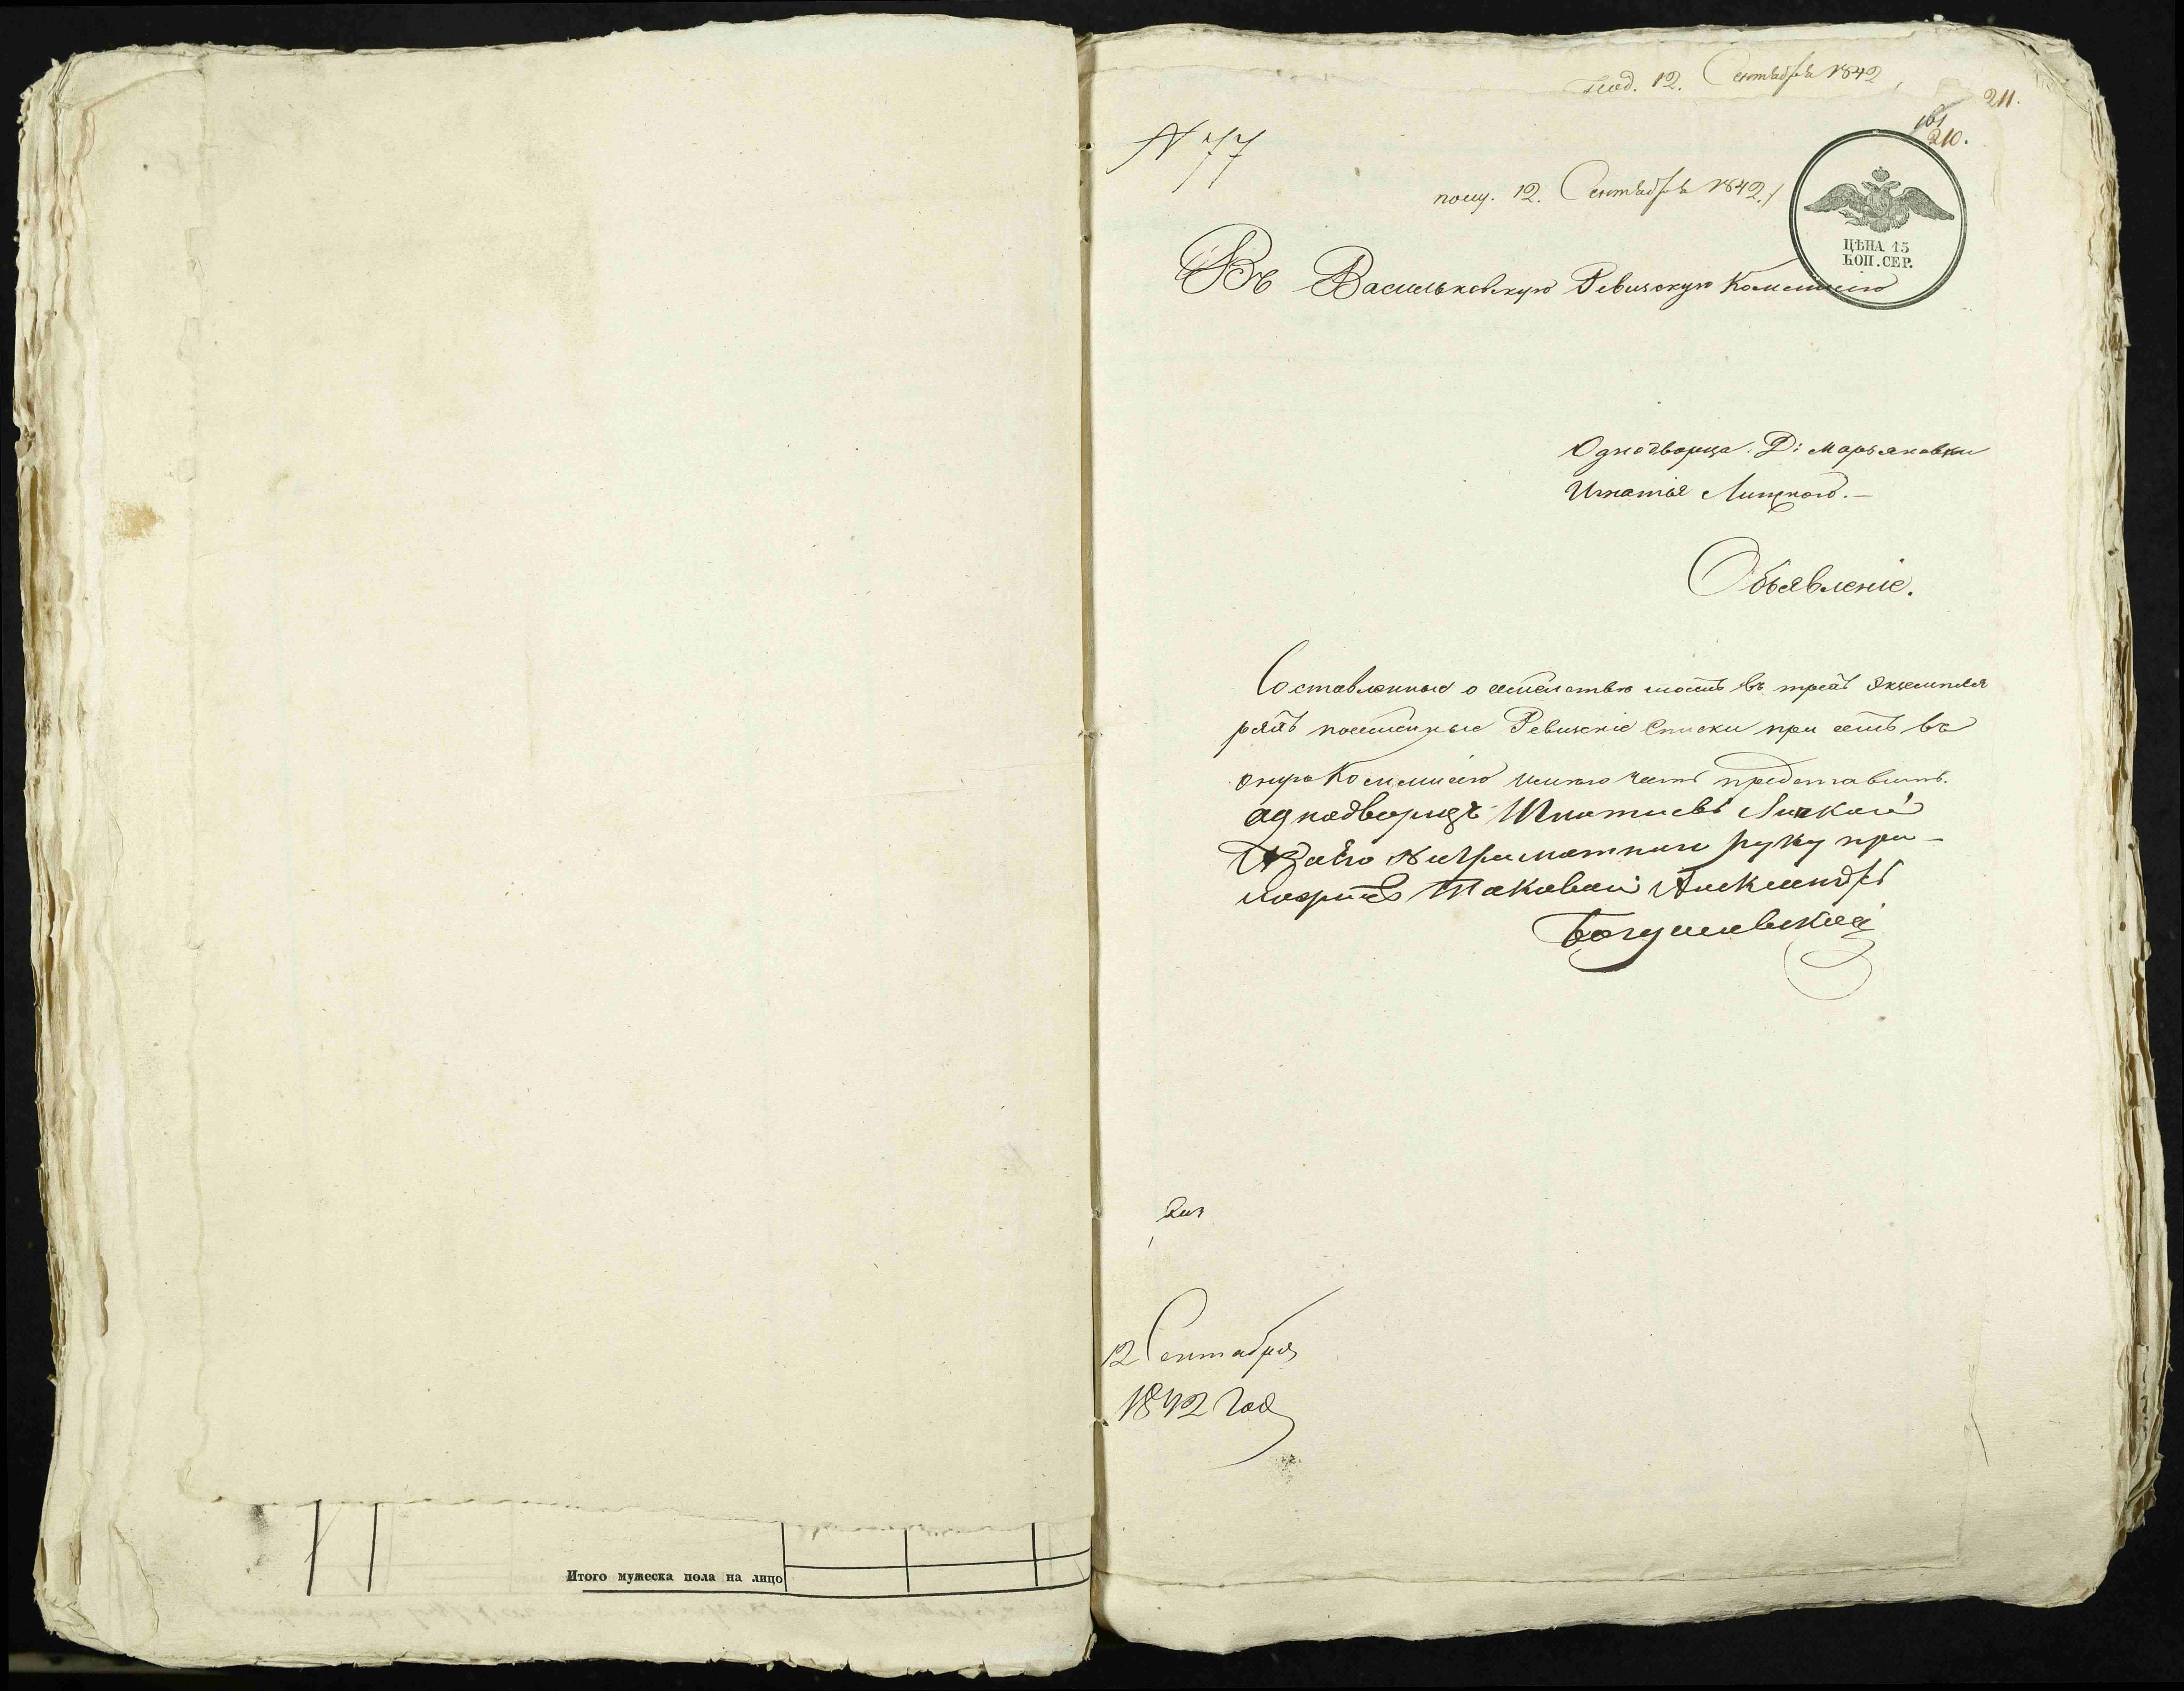 Итого мужеска пола на лицо
под. 12. Сентября 1842
211.
161
210.
N 77
пощ. 12. Сентября 1842
ЦѢНА 15
КОП. СЕР.
Въ Васильковскую Ревизскую Комисию
Однодворца Д: Марьяновки
Игнатія Лицкого.—
Объявленіе.
Составленные о семействѣ моемъ въ трехъ экземпля
рахъ посемейные Ревизкіе Списки при семъ въ
оную Коммисію имѣю честь представить.
аднодворецъ Игнатиевъ Лицкой
А за его неграматного руку при-
ложилъ таковой Александръ
Богушевской
12 Сентября
1842 года